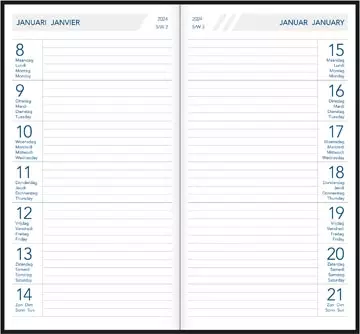 JANUARI JANVIER
2024
S/W 2
8
Maandag
Lundi
Montag
Monday
9
Dinsdag
Mardi
Dienstag
Tuesday
10
Woensdag
Mercredi
Mittwoch
Wednesday
11
Donderdag
Jeudi
Donnerstag
Thursday
12
Vrijdag
Vendredi
Freitag
Friday
13
Zaterdag
Samedi
Samstag
Saturday
14
Zon Dim
Son Sun
2024
S/W 3
JANUAR JANUARY
15
Maandag
Lundi
Montag
Monday
16
Dinsdag
Mardi
Dienstag
Tuesday
17
Woensdag
Mercredi
Mittwoch
Wednesday
18
Donderdag
Jeudi
Donnerstag
Thursday
19
Vrijdag
Vendredi
Freitag
Friday
20
Zaterdag
Samedi
Samstag
Saturday
21
Zon Dim
Son Sun